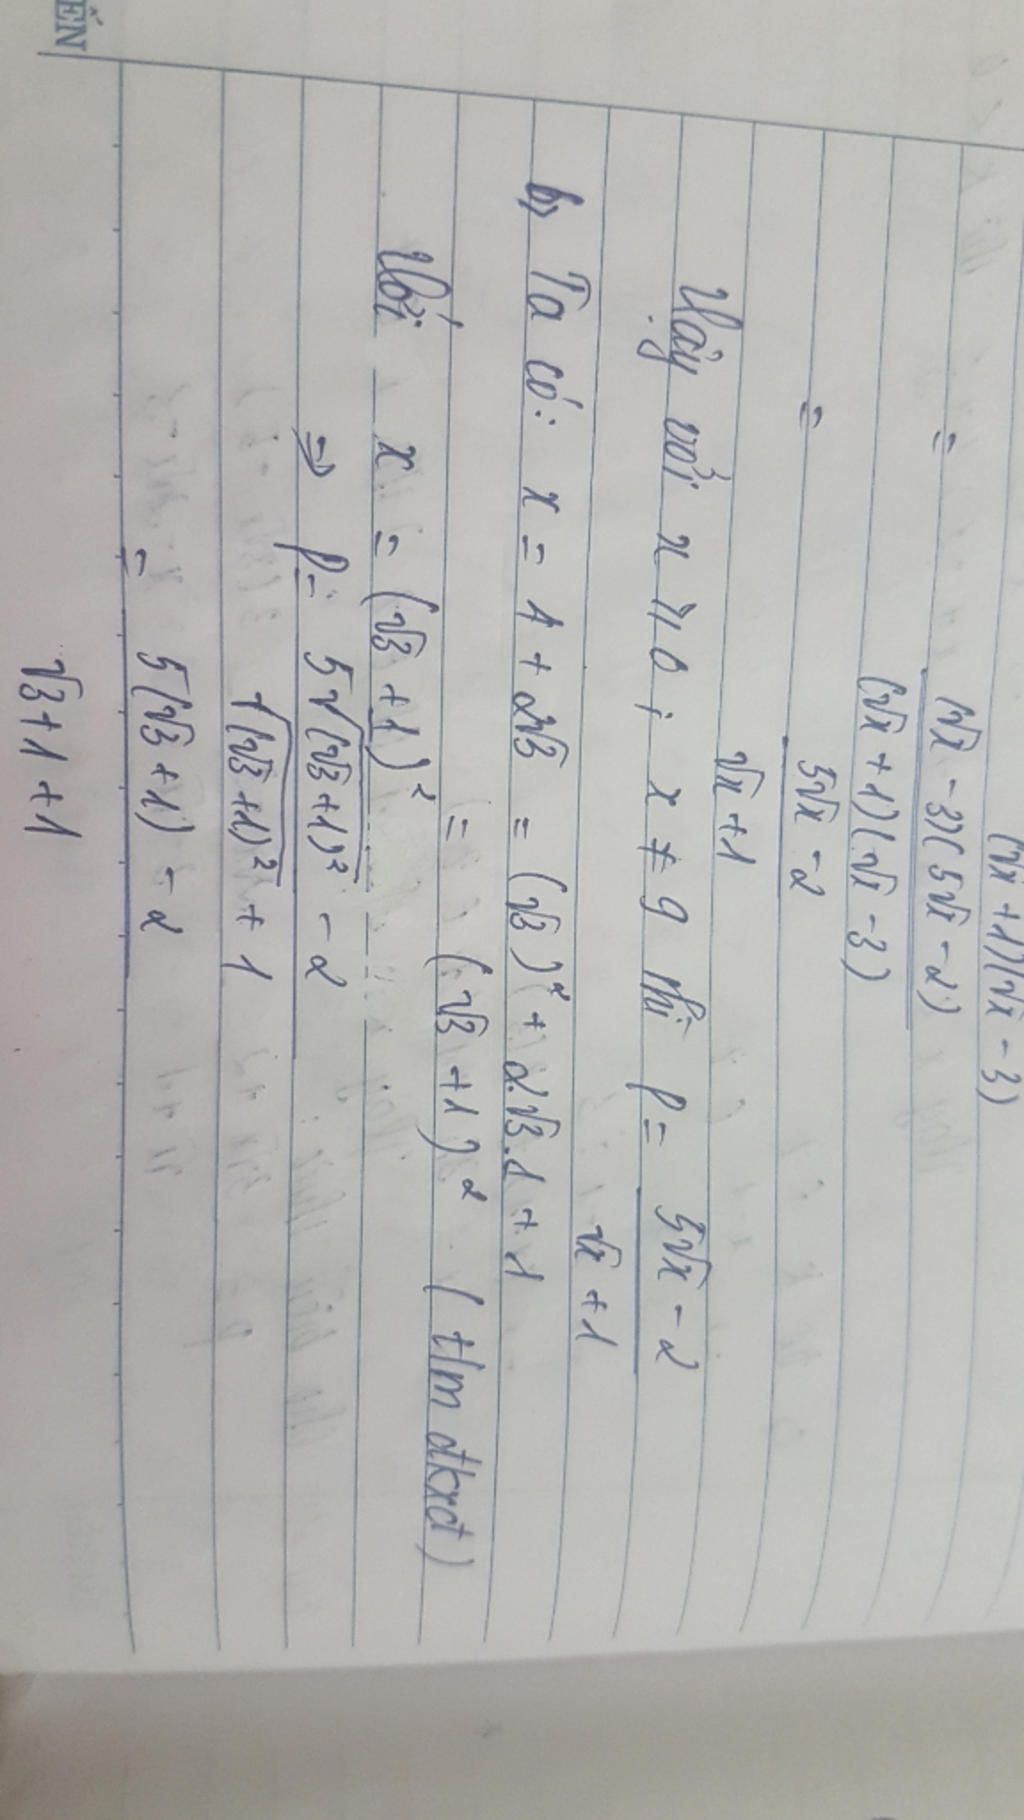 (√x + 1)(√x - 3)
= (√x - 3)(5√x - 2)
(√x + 1)(√x - 3)
= 5√x - 2
√x + 1
Vậy với x ≥ 0 ; x ≠ 9 thì P = 5√x - 2
√x + 1
b, Ta có: x = 4 + 2√3 = (√3)² + 2.√3.1 + 1
= (√3 + 1)² (t/m đkxđ)
Với x = (√3 + 1)²
⇒ P = 5√(√3+1)² - 2
√(√3+1)² + 1
= 5(√3 + 1) - 2
√3 + 1 + 1
ẾN